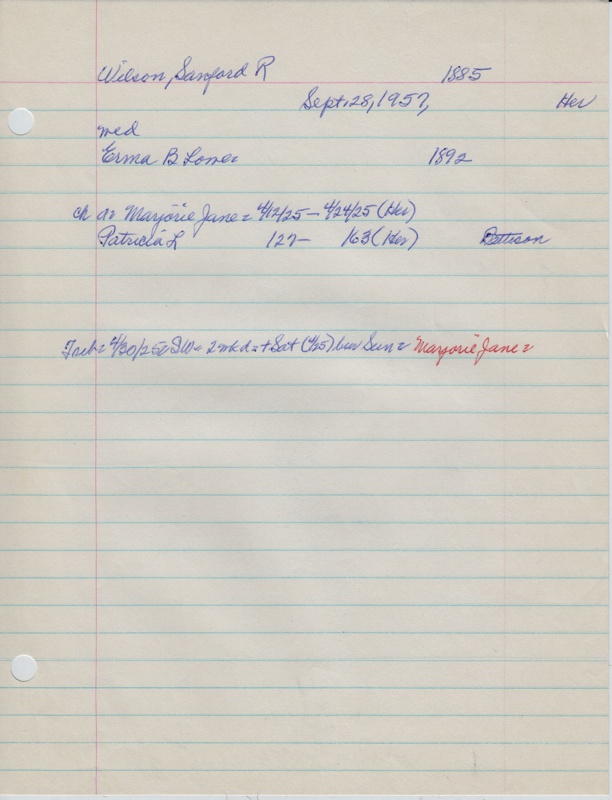 Wilson, Sanford R 1885
Sept. 28, 1957, Her
med
Erma B 1892
ch d= Marjorie Jane = 4/12/25 – 4/24/25 (Her)
Patricia L 127 – 163 (Her)
Trib = 4/30/25 = SW = 2 wk d = + Sat (4/25) bur Sun = Marjorie Jane =